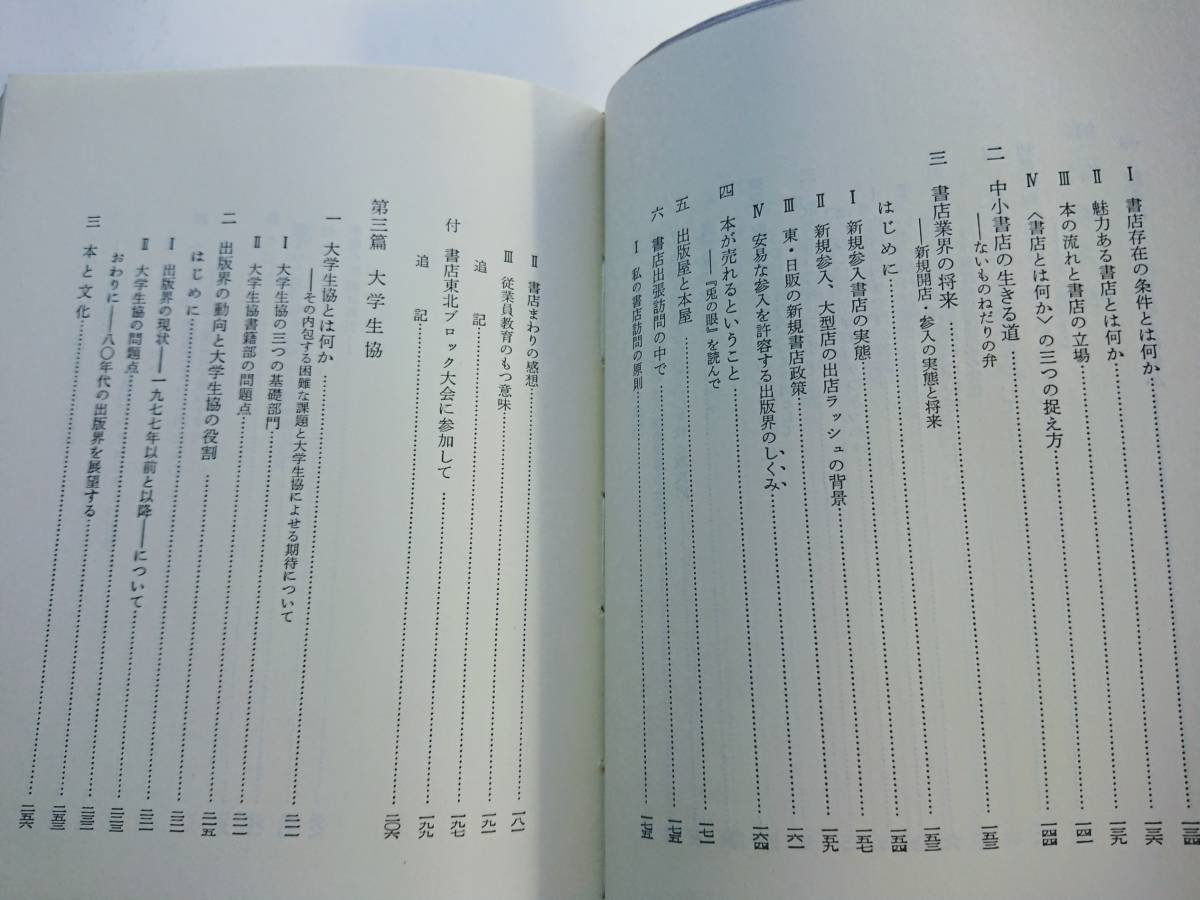 Ⅰ 書店存在の条件とは何か……一三四
Ⅱ 魅力ある書店とは何か……一三六
Ⅲ 本の流れと書店の立場……一三九
Ⅳ 〈書店とは何か〉の三つの捉え方……一四一
二 中小書店の生きる道……一四四
――ないものねだりの弁
三 書店業界の将来……一五三
――新規開店・参入の実態と将来
はじめに……一五三
Ⅰ 新規参入書店の実態……一五四
Ⅱ 新規参入、大型店の出店ラッシュの背景……一五七
Ⅲ 東・日販の新規書店政策……一五九
Ⅳ 安易な参入を許容する出版界のしくみ……一六一
四 本が売れるということ……一六四
――『兎の眼』を読んで
五 出版屋と本屋……一七一
六 書店出張訪問の中で……一七五
Ⅰ 私の書店訪問の原則……一七五
Ⅱ 書店まわりの感想……一八一
Ⅲ 従業員教育のもつ意味……一九一
追記……一九七
付 書店東北ブロック大会に参加して……一九九
追記……二〇六
第三篇 大学生協
一 大学生協とは何か……二一一
――その内包する困難な課題と大学生協によせる期待について
Ⅰ 大学生協の三つの基礎部門……二一一
Ⅱ 大学生協書籍部の問題点……二一五
二 出版界の動向と大学生協の役割……二二一
はじめに……二二一
Ⅰ 出版界の現状――一九七七年以前と以降――について……二三三
Ⅱ 大学生協の問題点……二三三
おわりに――八〇年代の出版界を展望する……二五三
三 本と文化……二五六